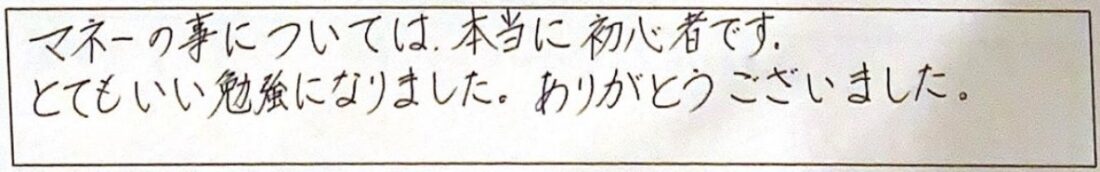 マネーの事については.本当に初心者です.
とてもいい勉強になりました。ありがとうございました。